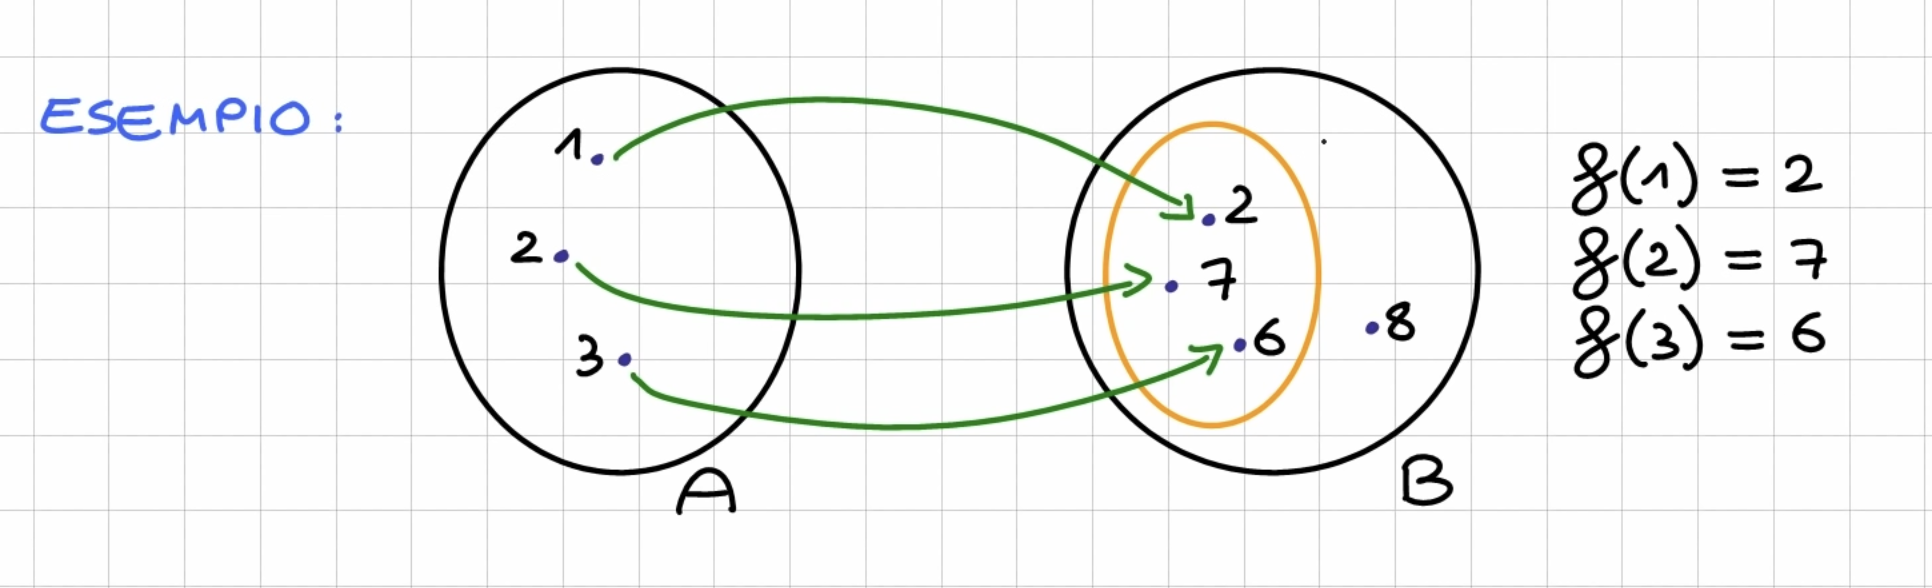 ESEMPIO:
1
2
3
A
2
7
6
8
B
f(1) = 2
f(2) = 7
f(3) = 6